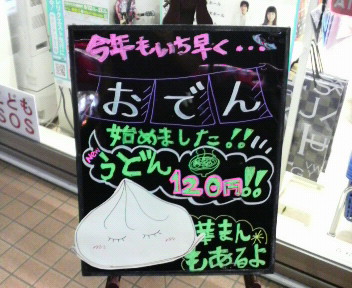 今年もいち早く・・・
おでん
始めました!!
New
うどん
120円!!
華まん
もあるよ
とも
SOS